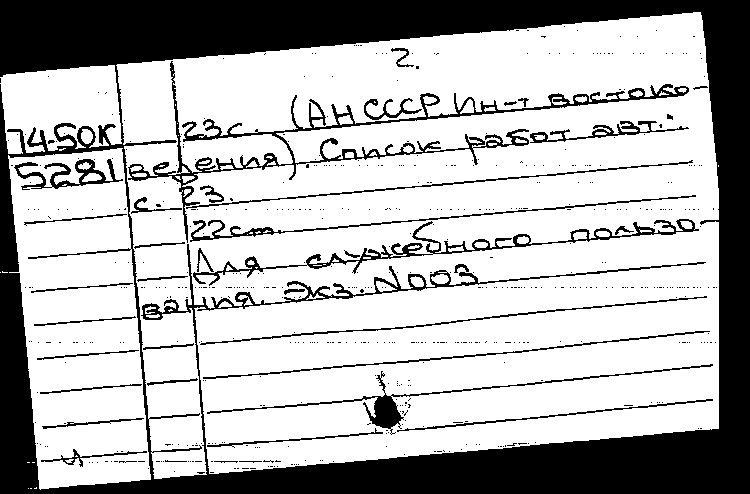 2.
74-50К 23с. (АН СССР. Ин-т востоко-
5281 ведения). Список работ авт.:
с. 23.
22 см.
Для служебного пользо-
вания. Экз. N003